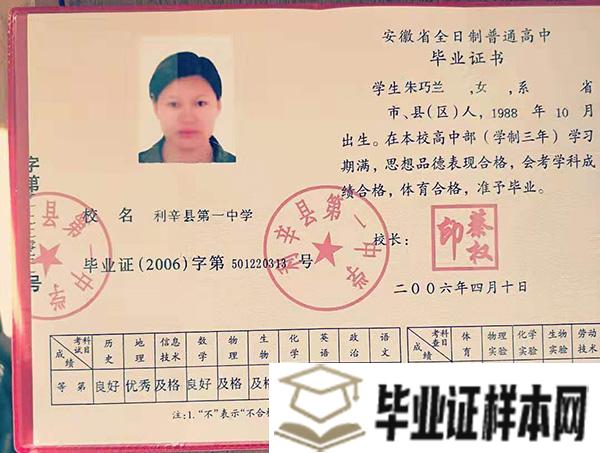 安徽省全日制普通高中
毕业证书
学生朱巧兰 ,女,系 省
市、县(区)人,1988 年 10 月
出生。在本校高中部(学制三年)学习
期满,思想品德表现合格,会考学科成
绩合格,体育合格,准予毕业。
校长:
秦权印
二〇〇六年四月十日
字第
号
校 名 利辛县第一中学
毕业证(2006)字第 501220313 号
利辛县第一中学
县第一中学
考试科目 历史 地理 信息技术 数学 物理 生物 化学 英语 政治 语文
成绩
等第 良好 优秀 及格 良好 及格 及格
注:1."不"表示"不合格
考查科目 体育 物理实验 化学实验 生物实验 劳动技术
成绩
毕业证样本网